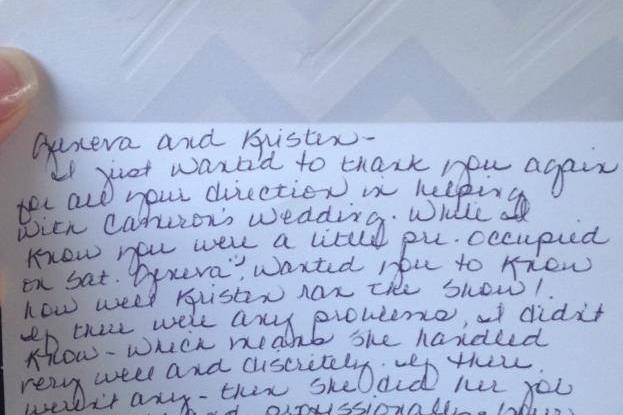 Geneva and Kristen-
I just wanted to thank you again
for all your direction in helping
with Cameron's wedding. While I
know you were a little pre-occupied
on Sat. Geneva", wanted you to know
how well Kristen ran the show!
If there were any problems, I didn't
know - which means she handled
very well and discretely. If there
weren't any - then she did her job
and professionally